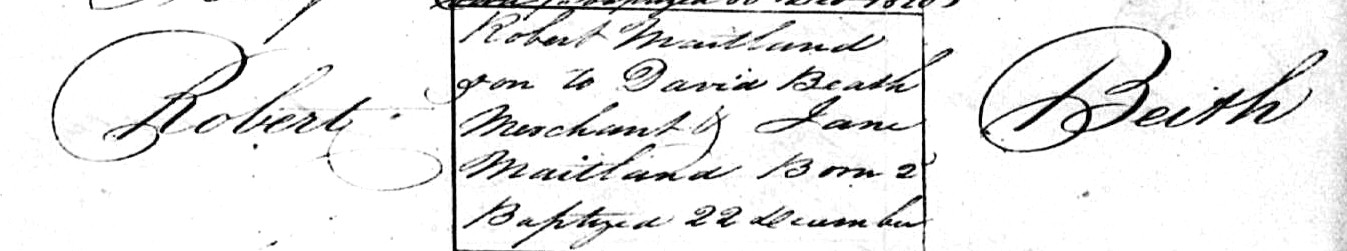 Baptized Dec 1820
Robert
Robert Maitland
Son to David Beath
Merchant & Jane
Maitland Born 2d
Baptized 22 December
Beith